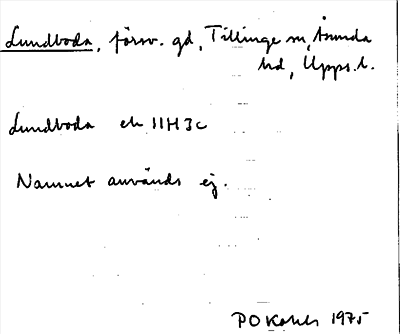 Lundboda, försv. gd, Tillinge sn, Åsunda
hd, Upps. l.
Lundboda ek 11H3c
Namnet används ej.
P O 1975